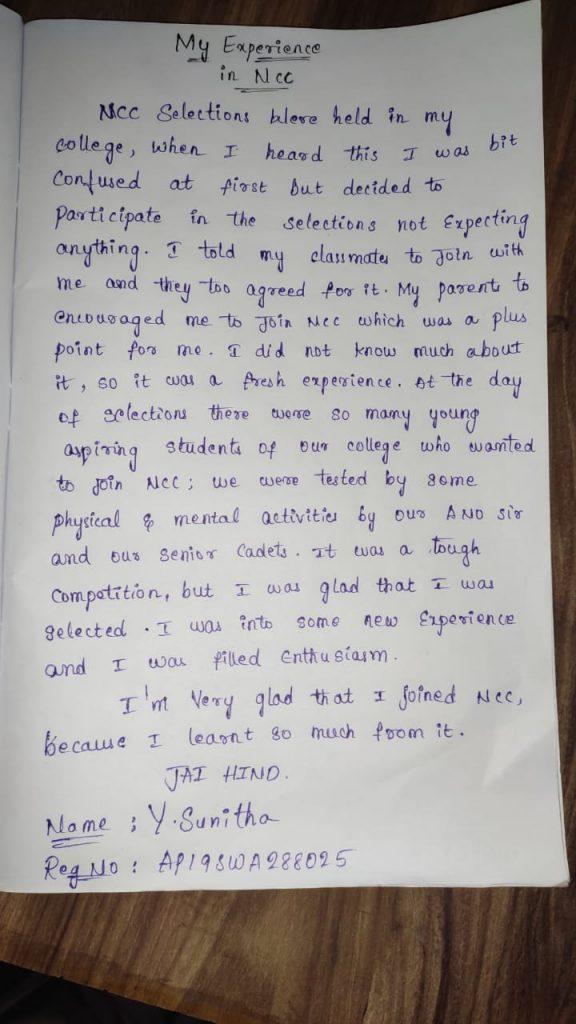 My Experience
in Ncc
NCC Selections were held in my
college, when I heard this I was bit
Confused at first but decided to
Participate in the selections not Expecting
anything. I told my classmates to Join with
me and they too agreed for it. My parents to
encouraged me to Join Ncc which was a plus
point for me. I did not know much about
it, so it was a fresh experience. At the day
of selections there were so many young
aspiring students of our college who wanted
to join NCC; we were tested by some
physical & mental activities by our ANO sir
and our Senior Cadets. It was a tough
Compotition, but I was glad that I was
selected. I was into some new Experience
and I was filled Enthusiasm.
I'm Very glad that I joined Ncc,
because I learnt so much from it.
JAI HIND.
Name : Y.Sunitha
Reg No : AP19SWA288025